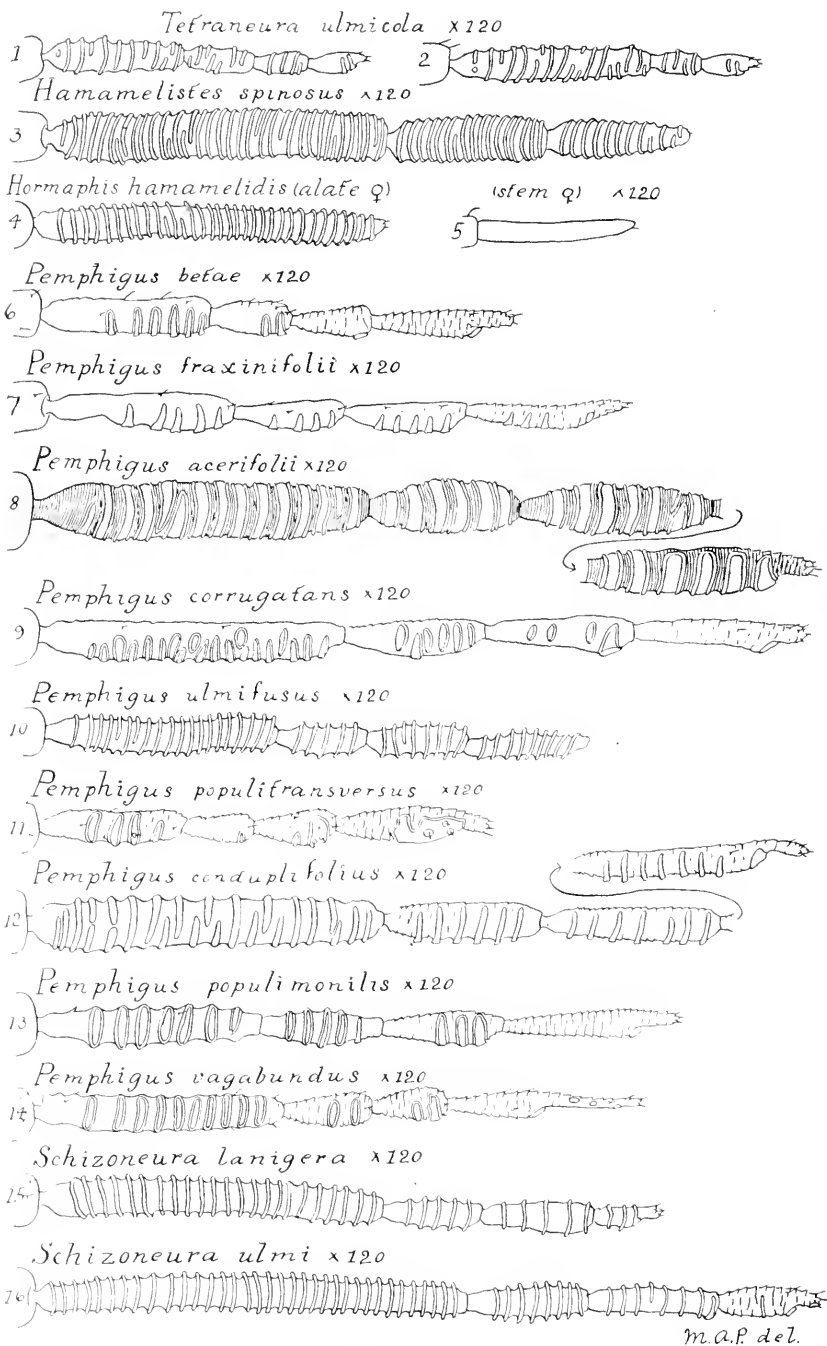 Tetraneura ulmicola x120
1 2
Hamamelistes spinosus x120
3
Hormaphis hamamelidis (alate ♀) (stem ♀) x120
4 5
Pemphigus betae x120
6
Pemphigus fraxinifolii x120
7
Pemphigus acerifolii x120
8
Pemphigus corrugatans x120
9
Pemphigus ulmifusus x120
10
Pemphigus populitransversus x120
11
Pemphigus conduplifolius x120
12
Pemphigus populimonilis x120
13
Pemphigus vagabundus x120
14
Schizoneura lanigera x120
15
Schizoneura ulmi x120
16
M.A.P. del.